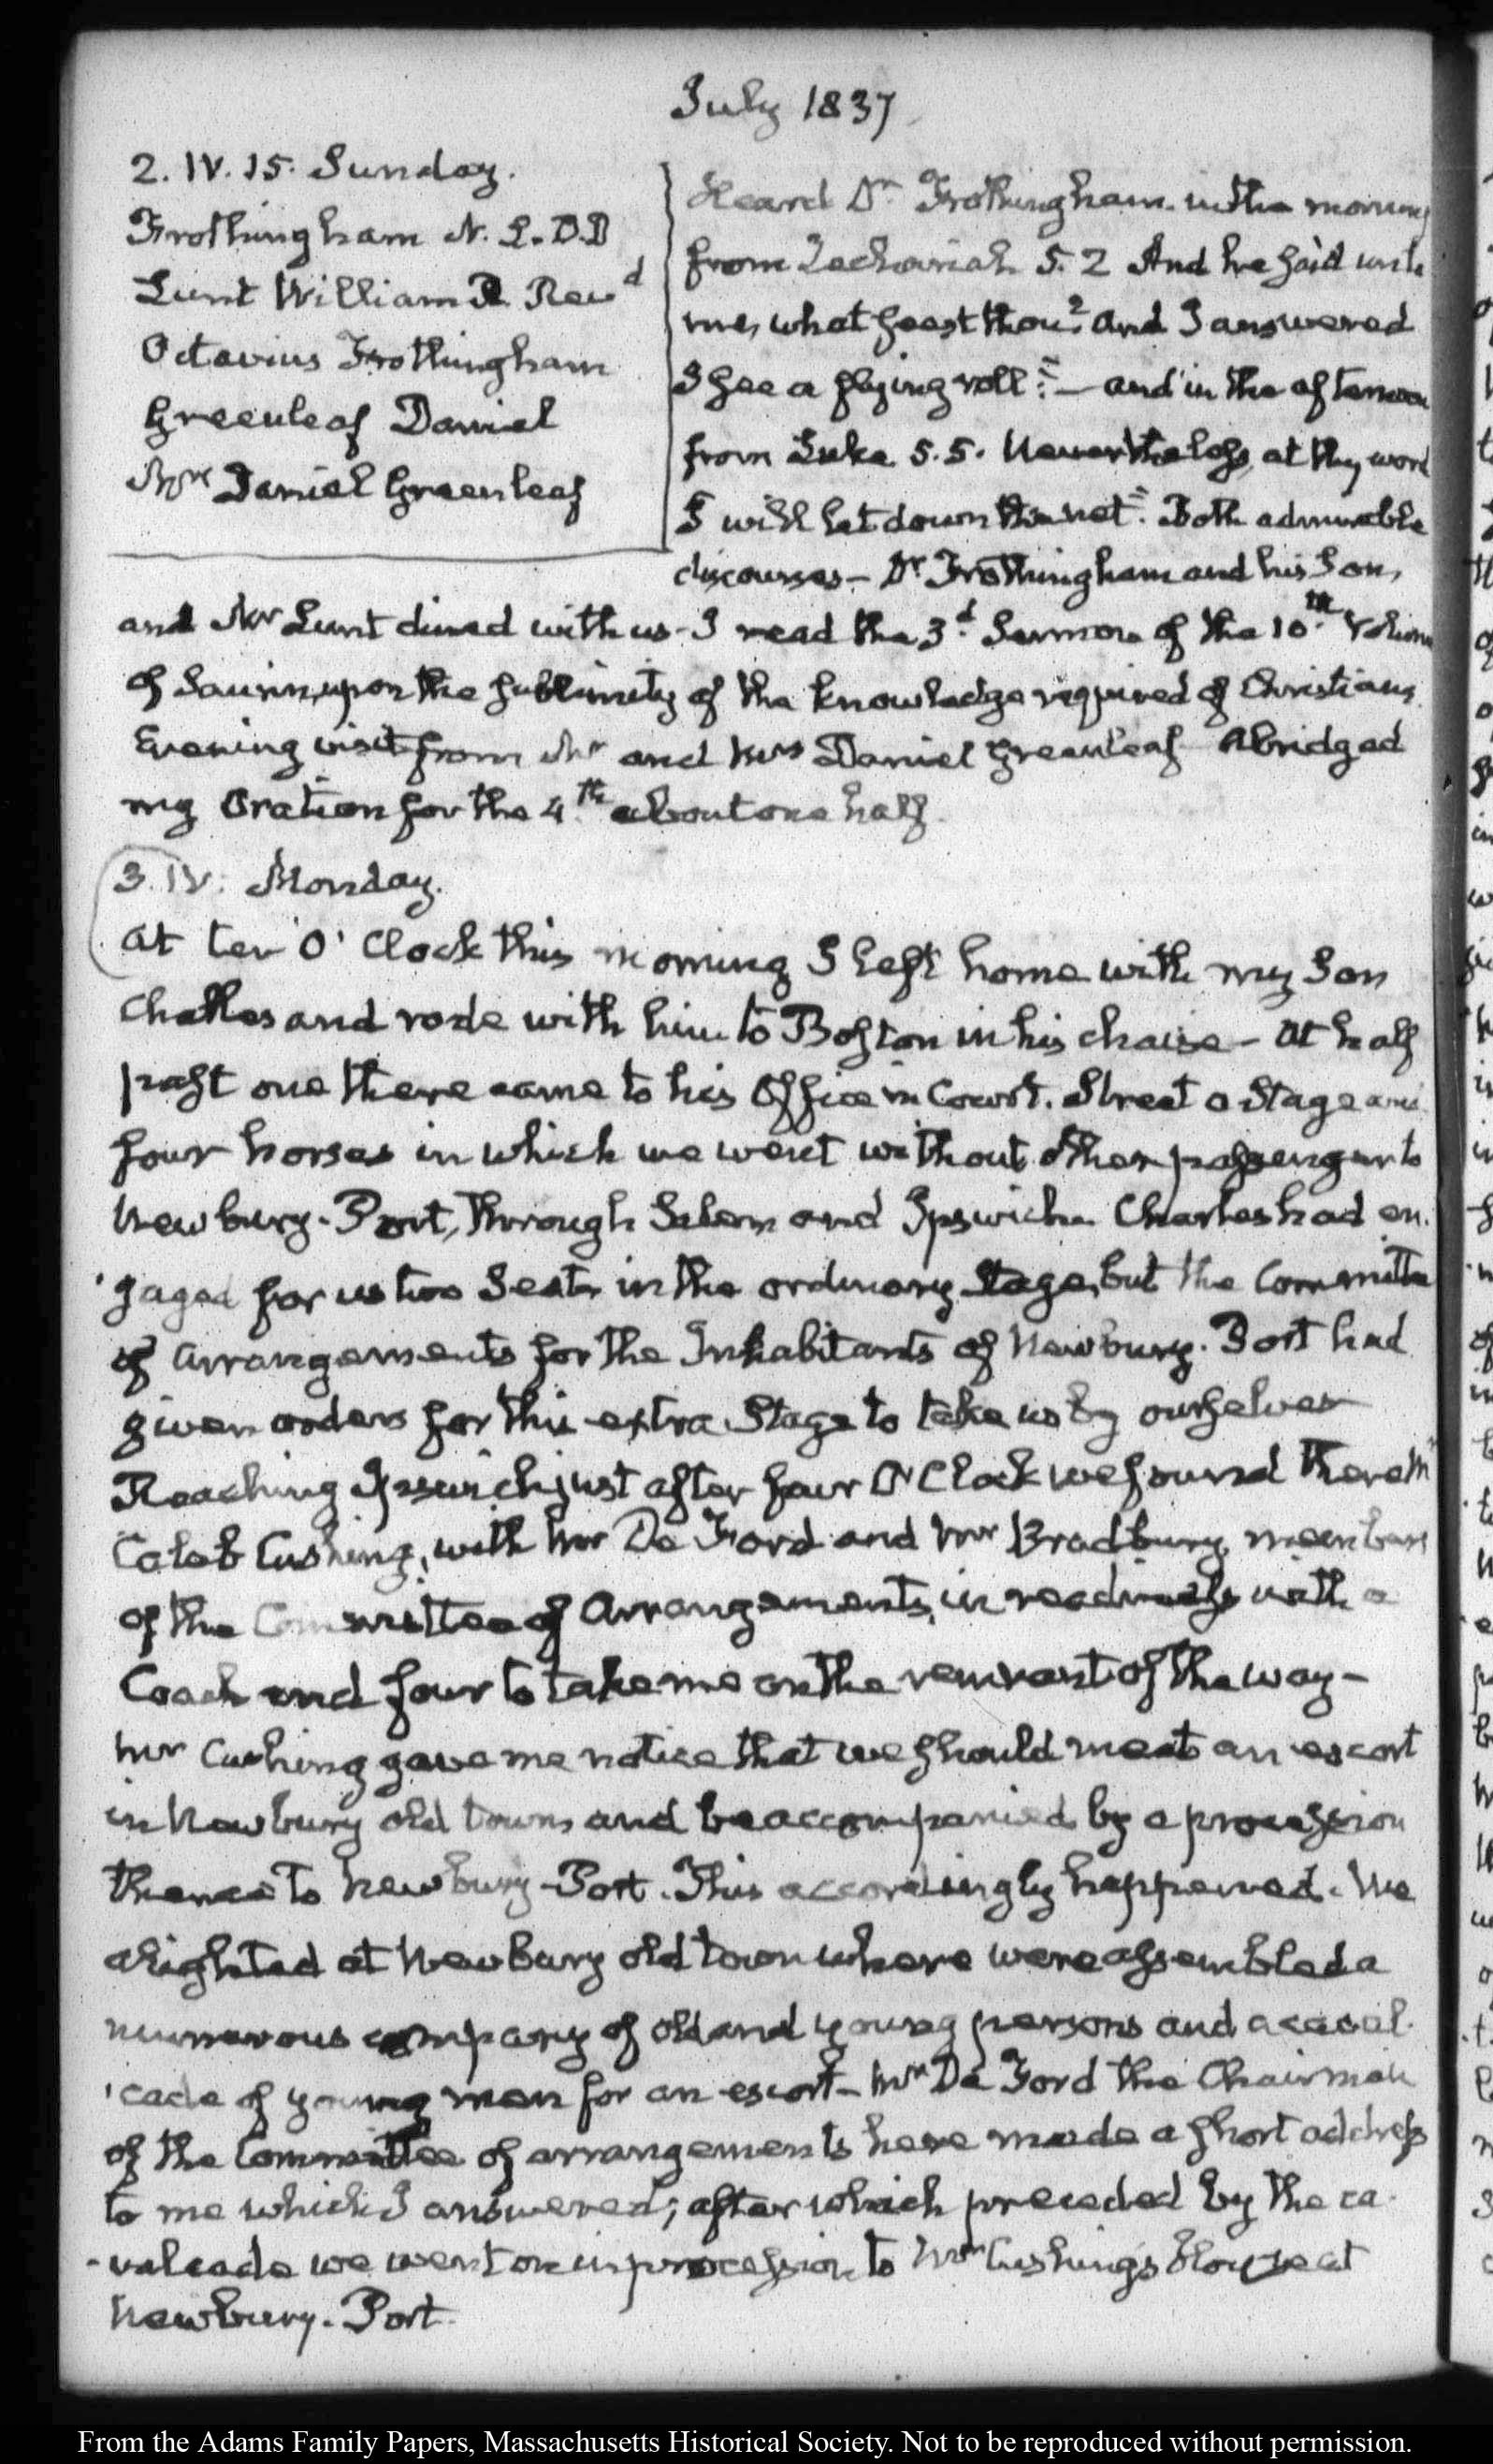 July 1837
2. IV. 15. Sunday.
Frothingham N. L. D.D
Lunt William P. Revd
Octavius Frothingham
Greenleaf Daniel
Mrs Daniel Greenleaf
Heard Dr Frothingham in the morning
from Zechariah 5. 2 And he said unto
me, what seest thou? And I answered
I see a flying roll: — and in the afternoon
from Luke 5. 5. Nevertheless, at thy word
I will let down the net. Both admirable
discourses — Dr Frothingham and his Son,
and Mr Lunt dined with us - I read the 3d Sermon of the 10th Volume
of Saurin, upon the sublimity of the knowledge required of Christians.
Evening visit from Mr and Mrs Daniel Greenleaf Abridged
my Oration for the 4th about one half.
3. IV. Monday.
At ten O'Clock this morning I left home with my Son
Charles and rode with him to Boston in his chaise — At half
past one there came to his Office in Court Street a Stage and
four horses in which we went without other passenger to
Newbury-Port, through Salem and Ipswich. Charles had en-
gaged for us two Seats in the ordinary Stage, but the Committee
of Arrangements for the Inhabitants of Newbury-Port had
given orders for this extra Stage to take us by ourselves
Reaching Ipswich just after four O'Clock we found there Mr
Caleb Cushing, with Mr De Ford and Mr Bradbury, members
of the Committee of Arrangements, in readiness with a
Coach and four to take me on the remnant of the way —
Mr Cushing gave me notice that we should meet an escort
in Newbury old town, and be accompanied by a procession
thence to Newbury-Port. This accordingly happened. We
alighted at Newbury old town where were assembled a
numerous company of old and young persons and a caval-
cade of young men for an escort — Mr De Ford the Chairman
of the Committee of arrangements here made a short address
to me which I answered; after which preceded by the ca-
-valcade we went on in procession to Mr Cushing's House at
Newbury-Port.
From the Adams Family Papers, Massachusetts Historical Society. Not to be reproduced without permission.